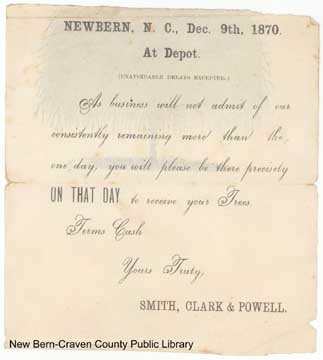 NEWBERN, N. C., Dec. 9th, 1870.
At Depot.
(UNAVOIDABLE DELAYS EXCEPTED.)
As business will not admit of our
consistently remaining more than the
one day, you will please be there precisely
ON THAT DAY to receive your Trees.
Terms Cash
Yours Truly,
SMITH, CLARK & POWELL.
New Bern-Craven County Public Library